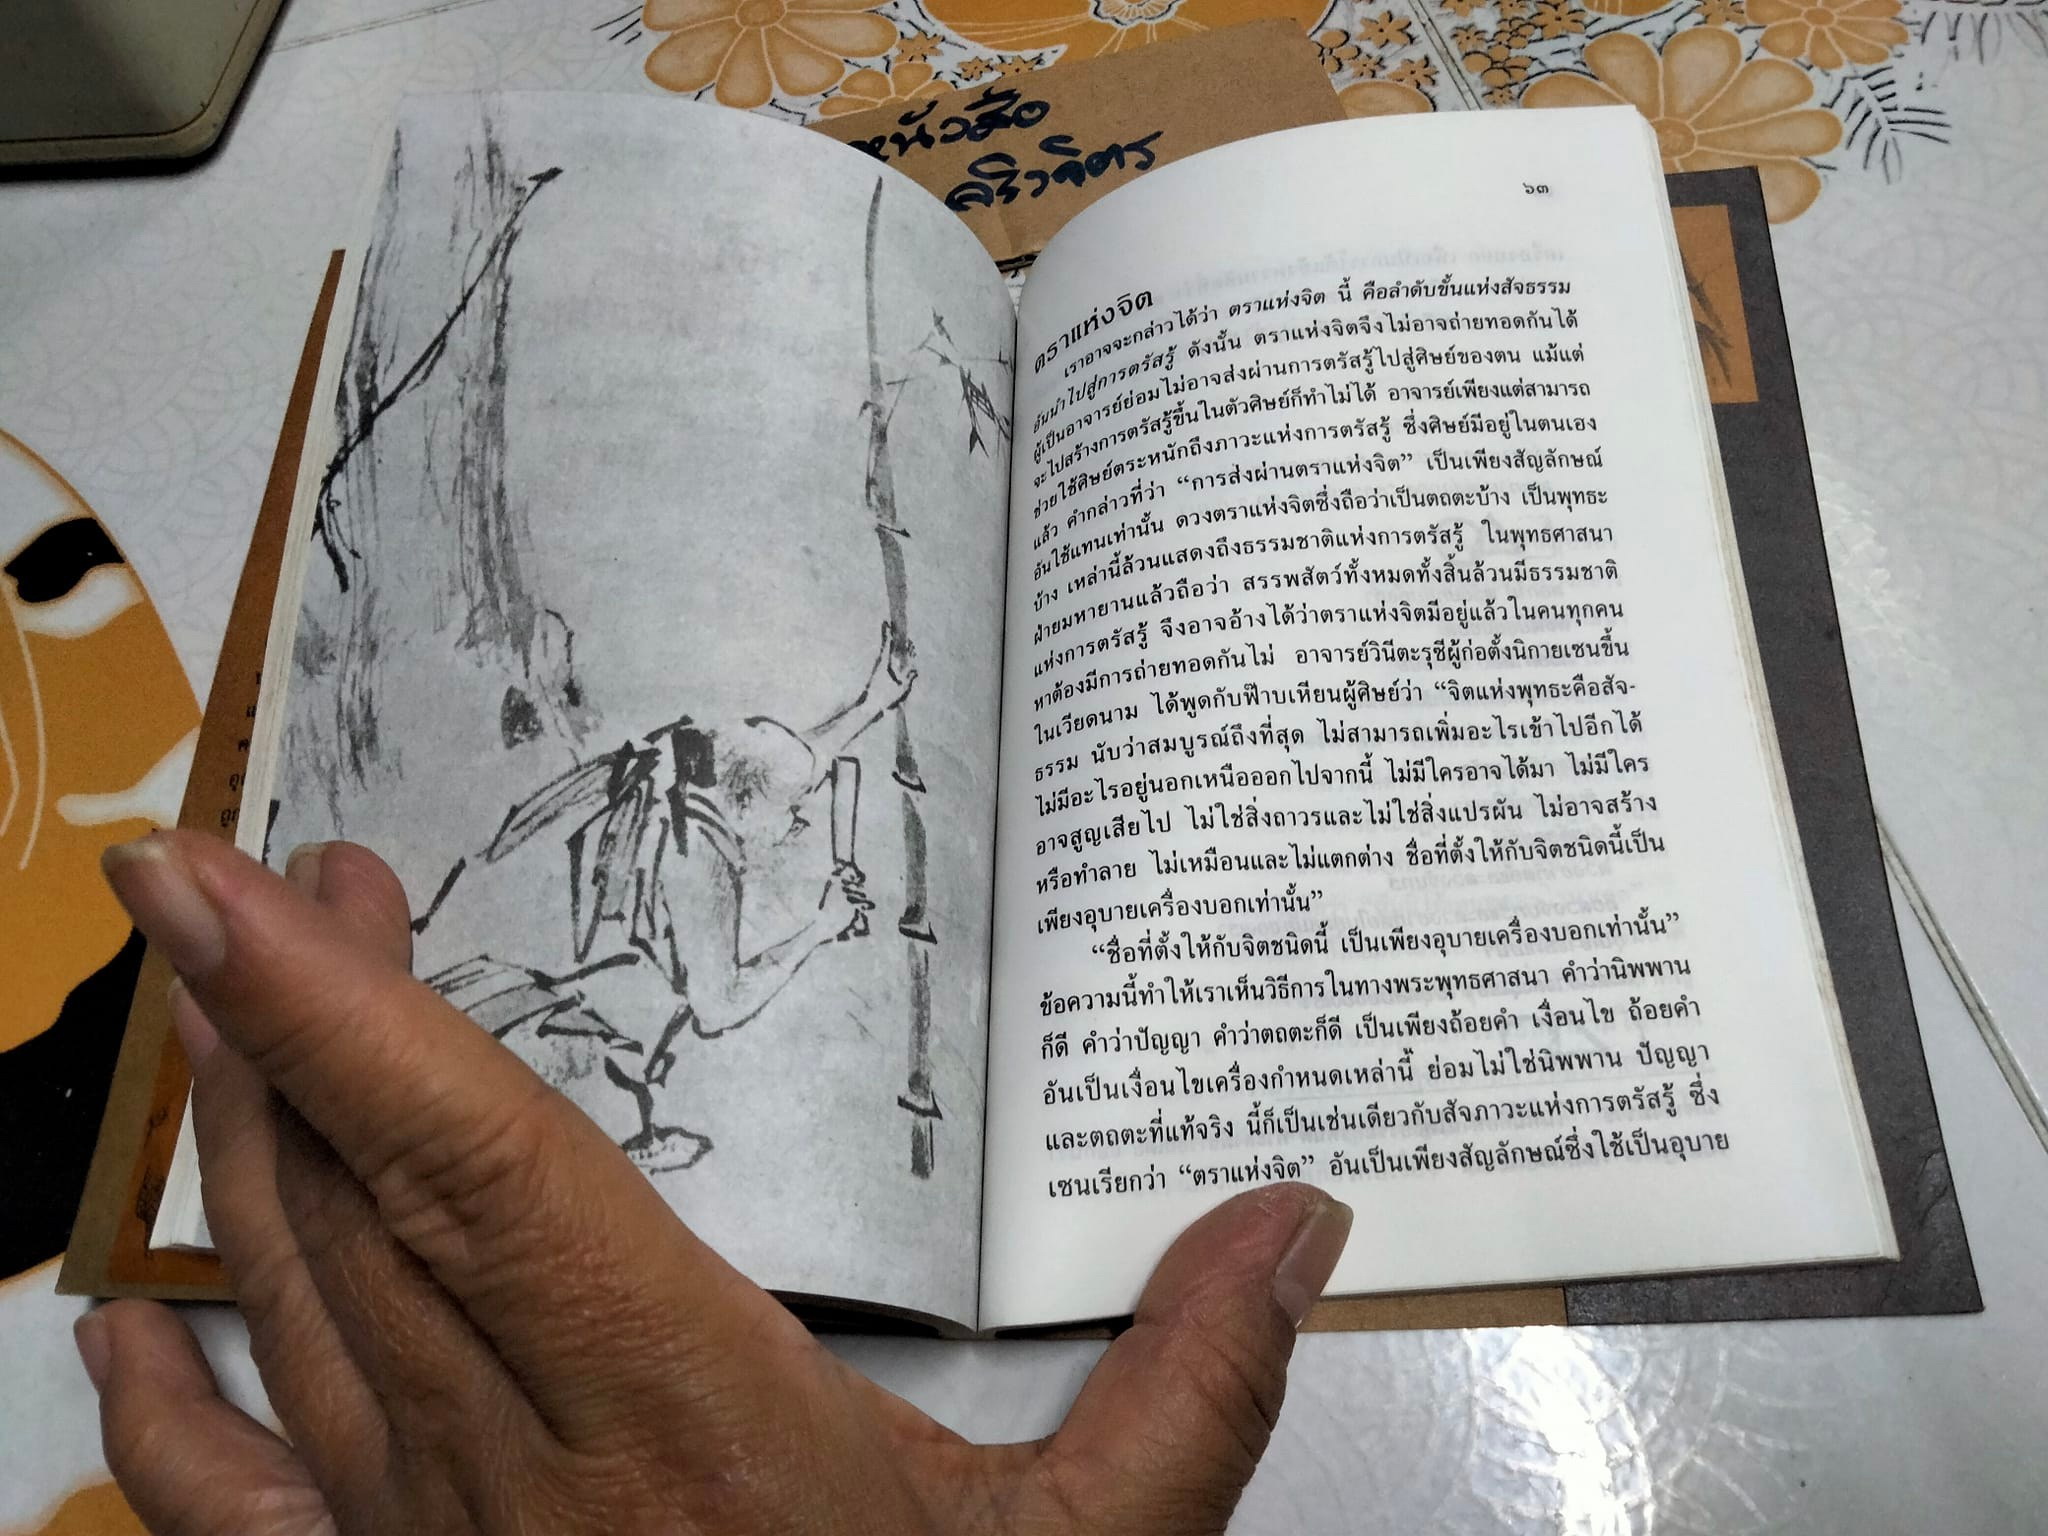 หนังสือ
ศิวจิตร
๖๓
ตราแห่งจิต
เราอาจจะกล่าวได้ว่า ตราแห่งจิต นี้ คือลำดับขั้นแห่งสัจธรรม
อันนำไปสู่การตรัสรู้ ดังนั้น ตราแห่งจิตจึงไม่อาจถ่ายทอดกันได้
ผู้เป็นอาจารย์ย่อมไม่อาจส่งผ่านการตรัสรู้ไปสู่ศิษย์ของตน แม้แต่
จะไปสร้างการตรัสรู้ขึ้นในตัวศิษย์ก็ทำไม่ได้ อาจารย์เพียงแต่สามารถ
ช่วยใช้ศิษย์ตระหนักถึงภาวะแห่งการตรัสรู้ ซึ่งศิษย์มีอยู่ในตนเอง
แล้ว คำกล่าวที่ว่า “การส่งผ่านตราแห่งจิต” เป็นเพียงสัญลักษณ์
อันใช้แทนเท่านั้น ดวงตราแห่งจิตซึ่งถือว่าเป็นตถตะบ้าง เป็นพุทธะ
บ้าง เหล่านี้ล้วนแสดงถึงธรรมชาติแห่งการตรัสรู้ ในพุทธศาสนา
ฝ่ายมหายานแล้วถือว่า สรรพสัตว์ทั้งหมดทั้งสิ้นล้วนมีธรรมชาติ
แห่งการตรัสรู้ จึงอาจอ้างได้ว่าตราแห่งจิตมีอยู่แล้วในคนทุกคน
หาต้องมีการถ่ายทอดกันไม่ อาจารย์วินีตะรุชีผู้ก่อตั้งนิกายเซนขึ้น
ในเวียดนาม ได้พูดกับฟ๊าบเหียนผู้ศิษย์ว่า “จิตแห่งพุทธะคือสัจ-
ธรรม นับว่าสมบูรณ์ถึงที่สุด ไม่สามารถเพิ่มอะไรเข้าไปอีกได้
ไม่มีอะไรอยู่นอกเหนือออกไปจากนี้ ไม่มีใครอาจได้มา ไม่มีใคร
อาจสูญเสียไป ไม่ใช่สิ่งถาวรและไม่ใช่สิ่งแปรผัน ไม่อาจสร้าง
หรือทำลาย ไม่เหมือนและไม่แตกต่าง ชื่อที่ตั้งให้กับจิตชนิดนี้เป็น
เพียงอุบายเครื่องบอกเท่านั้น”
“ชื่อที่ตั้งให้กับจิตชนิดนี้ เป็นเพียงอุบายเครื่องบอกเท่านั้น”
ข้อความนี้ทำให้เราเห็นวิธีการในทางพระพุทธศาสนา คำว่านิพพาน
ก็ดี คำว่าปัญญา คำว่าตถตะก็ดี เป็นเพียงถ้อยคำ เงื่อนไข ถ้อยคำ
อันเป็นเงื่อนไขเครื่องกำหนดเหล่านี้ ย่อมไม่ใช่นิพพาน ปัญญา
และตถตะที่แท้จริง นี้ก็เป็นเช่นเดียวกับสัจภาวะแห่งการตรัสรู้ ซึ่ง
เซนเรียกว่า “ตราแห่งจิต” อันเป็นเพียงสัญลักษณ์ซึ่งใช้เป็นอุบาย